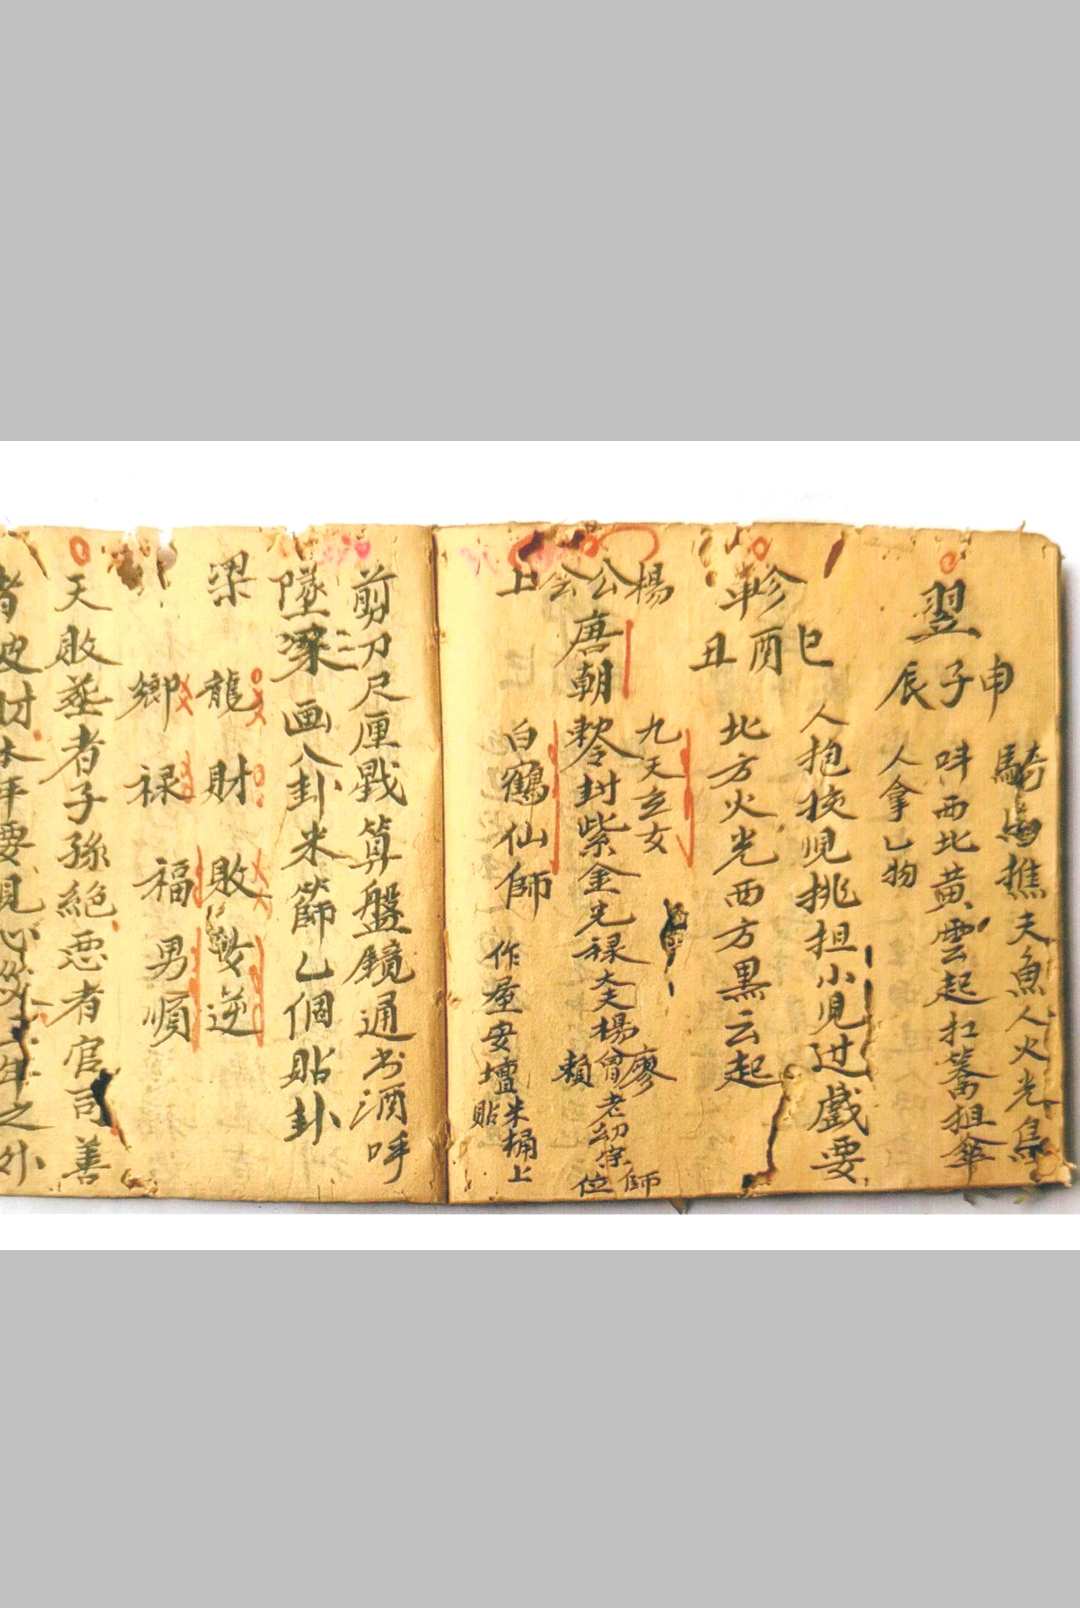 翌
申子辰
騎馬樵夫魚人火光集
呌西北黄雲起扛筹担傘
人拿乚物
軫
巳酉丑
人抱孩児挑担小児过戲耍
北方火光西方黒云起
楊公会上
九天玄女
唐朝勅封紫金光禄大夫楊曾廖賴老幼宗師位
白鶴仙師
作屋安壇米桶上貼
剪刀尺厘戥算盤鏡通书酒呼
墜梁画八卦米篩乚個貼卦
梁
龍財敗女逆
鄉禄福男順
天敗葢者子孫絶悪者官司善
者破財本年要見心
年之外